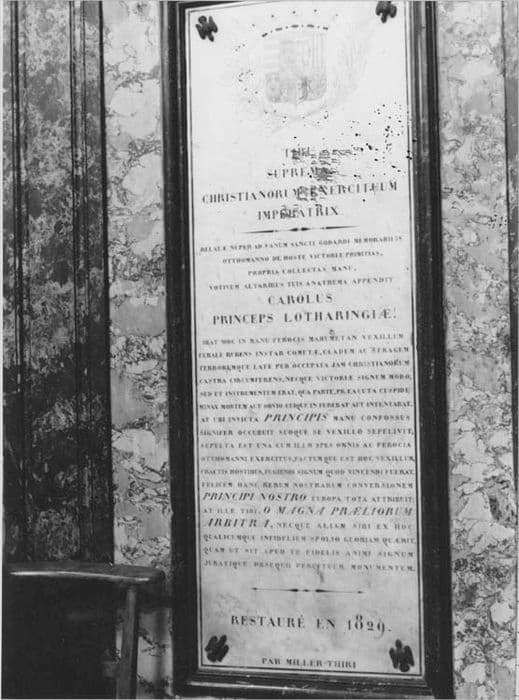 TIBI
SUPREMA
CHRISTIANORUM EXERCITUUM
IMPERATRIX
RELATAS NUPER AD FANUM SANCTI GODARDI MEMORABILIS
OTTHOMANNO DE HOSTE VICTORIÆ PRIMITIAS,
PROPRIA COLLECTAS MANU,
VOTIVUM ALTARIBUS TUIS ANATHEMA APPENDIT
CAROLUS
PRINCEPS LOTHARINGIÆ!
IBAT HOC IN MANU FEROCIS MAHUMETAM VEXILLUM
FERALE RUBENS INSTAR COMETÆ, CLADEM AC STRAGEM
TERROREMQUE LATE PER OCCUPATA JAM CHRISTIANORUM
CASTRA CIRCUMFERENS, NEQUE VICTORIÆ SIGNUM MODO,
SED ET INSTRUMENTUM ERAT, QUA PARTE, PRÆACUTA CUSPIDE
MINAX MORTEM AUT OBVIO CUIQUE INFEREBAT AUT INTENTABAT.
AT UBI INVICTA PRINCIPIS MANU CONFOSSUS
SIGNIFER OCCUBUIT SUOQUE SE VEXILLO SEPELIVIT,
SEPULTA EST UNA CUM ILLO SPES OMNIS AC FEROCIA
OTTHOMANNI EXERCITUS, FACTUMQUE EST HOC VEXILLUM,
FRACTIS HOSTIBUS, FUGIENDI SIGNUM QUOD VINCENDI FUERAT.
FELICEM HANC RERUM NOSTRARUM CONVERSIONEM
PRINCIPI NOSTRO EUROPA TOTA ATTRIBUIT;
AT ILLE TIBI, O MAGNA PRÆLIORUM
ARBITRA, NEQUE ALIAM SIBI EX HOC
QUALICUMQUE INFIDELIUM SPOLIO GLORIAM QUÆRIT,
QUAM UT SIT APUD TE FIDELIS ANIMI SIGNUM
JURATIQUE OBSEQUII PERPETUUM MONUMENTUM.
RESTAURÉ EN 1829.
PAR MILLER-THIRI